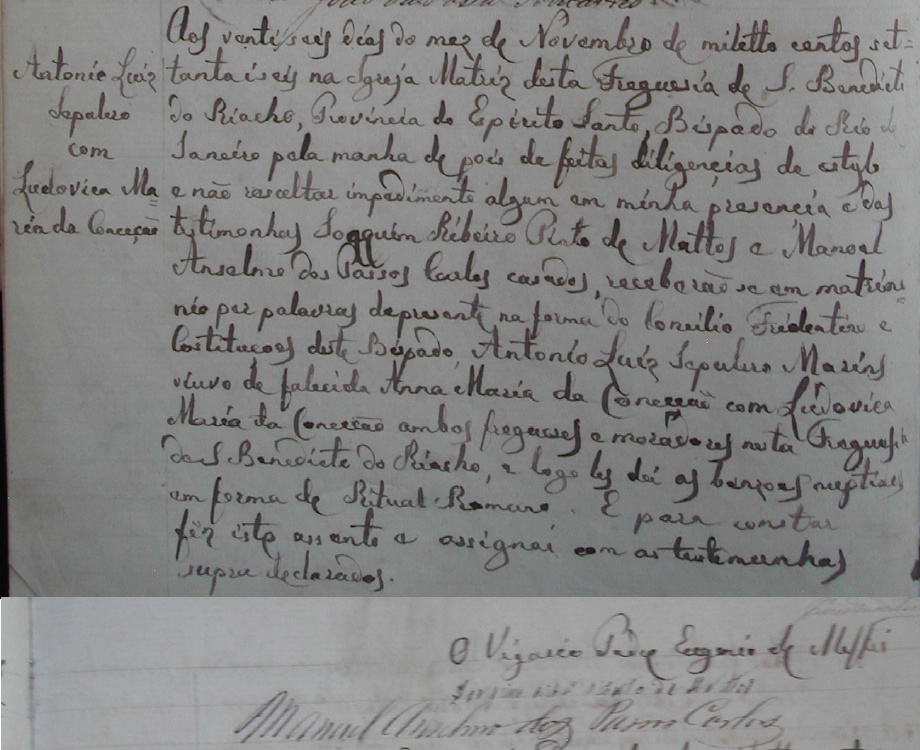 Aos vinti seis dias do mez de Novembro de mil etto centos set=
Antonio Luiz
tanta i seis na Igreja Matriz desta Fraguesia de S. Benedicti
Sepulvro
do Riacho, Provincia do Espirito Santo, Bispado do Rio de
com
Janeiro pela manha de pois de feitas diligencias do estylo
Ludovica Ma=
e não resceltar impedimento algum em minha presencia e das
réa da Conceção
testimonhas Joaquim Ribeiro Pinto de Mattos e Manoel
Anselmo dos Passos Carlos casados, receberão se em matrimo=
nio por palavras depresente na forma do Concilio Tridentino e
Costitucoes deste Bispado Antonio Luiz Sepulvro Marins
viuvo de falecida Anna Maria da Conceção com Ludovica
Maria da Conceção ambos freguezes e moradores nesta Freguesia
de S Benedicte do Riacho, e logo les dei as benzoes nuptiaes
em forma de Ritual Romano. E para constar
fiz iste assento e assignai com as testemunhas
supra declarados.
O Vigario Padre Eugenio de
Manuel Anselmo dos Passos Carlos